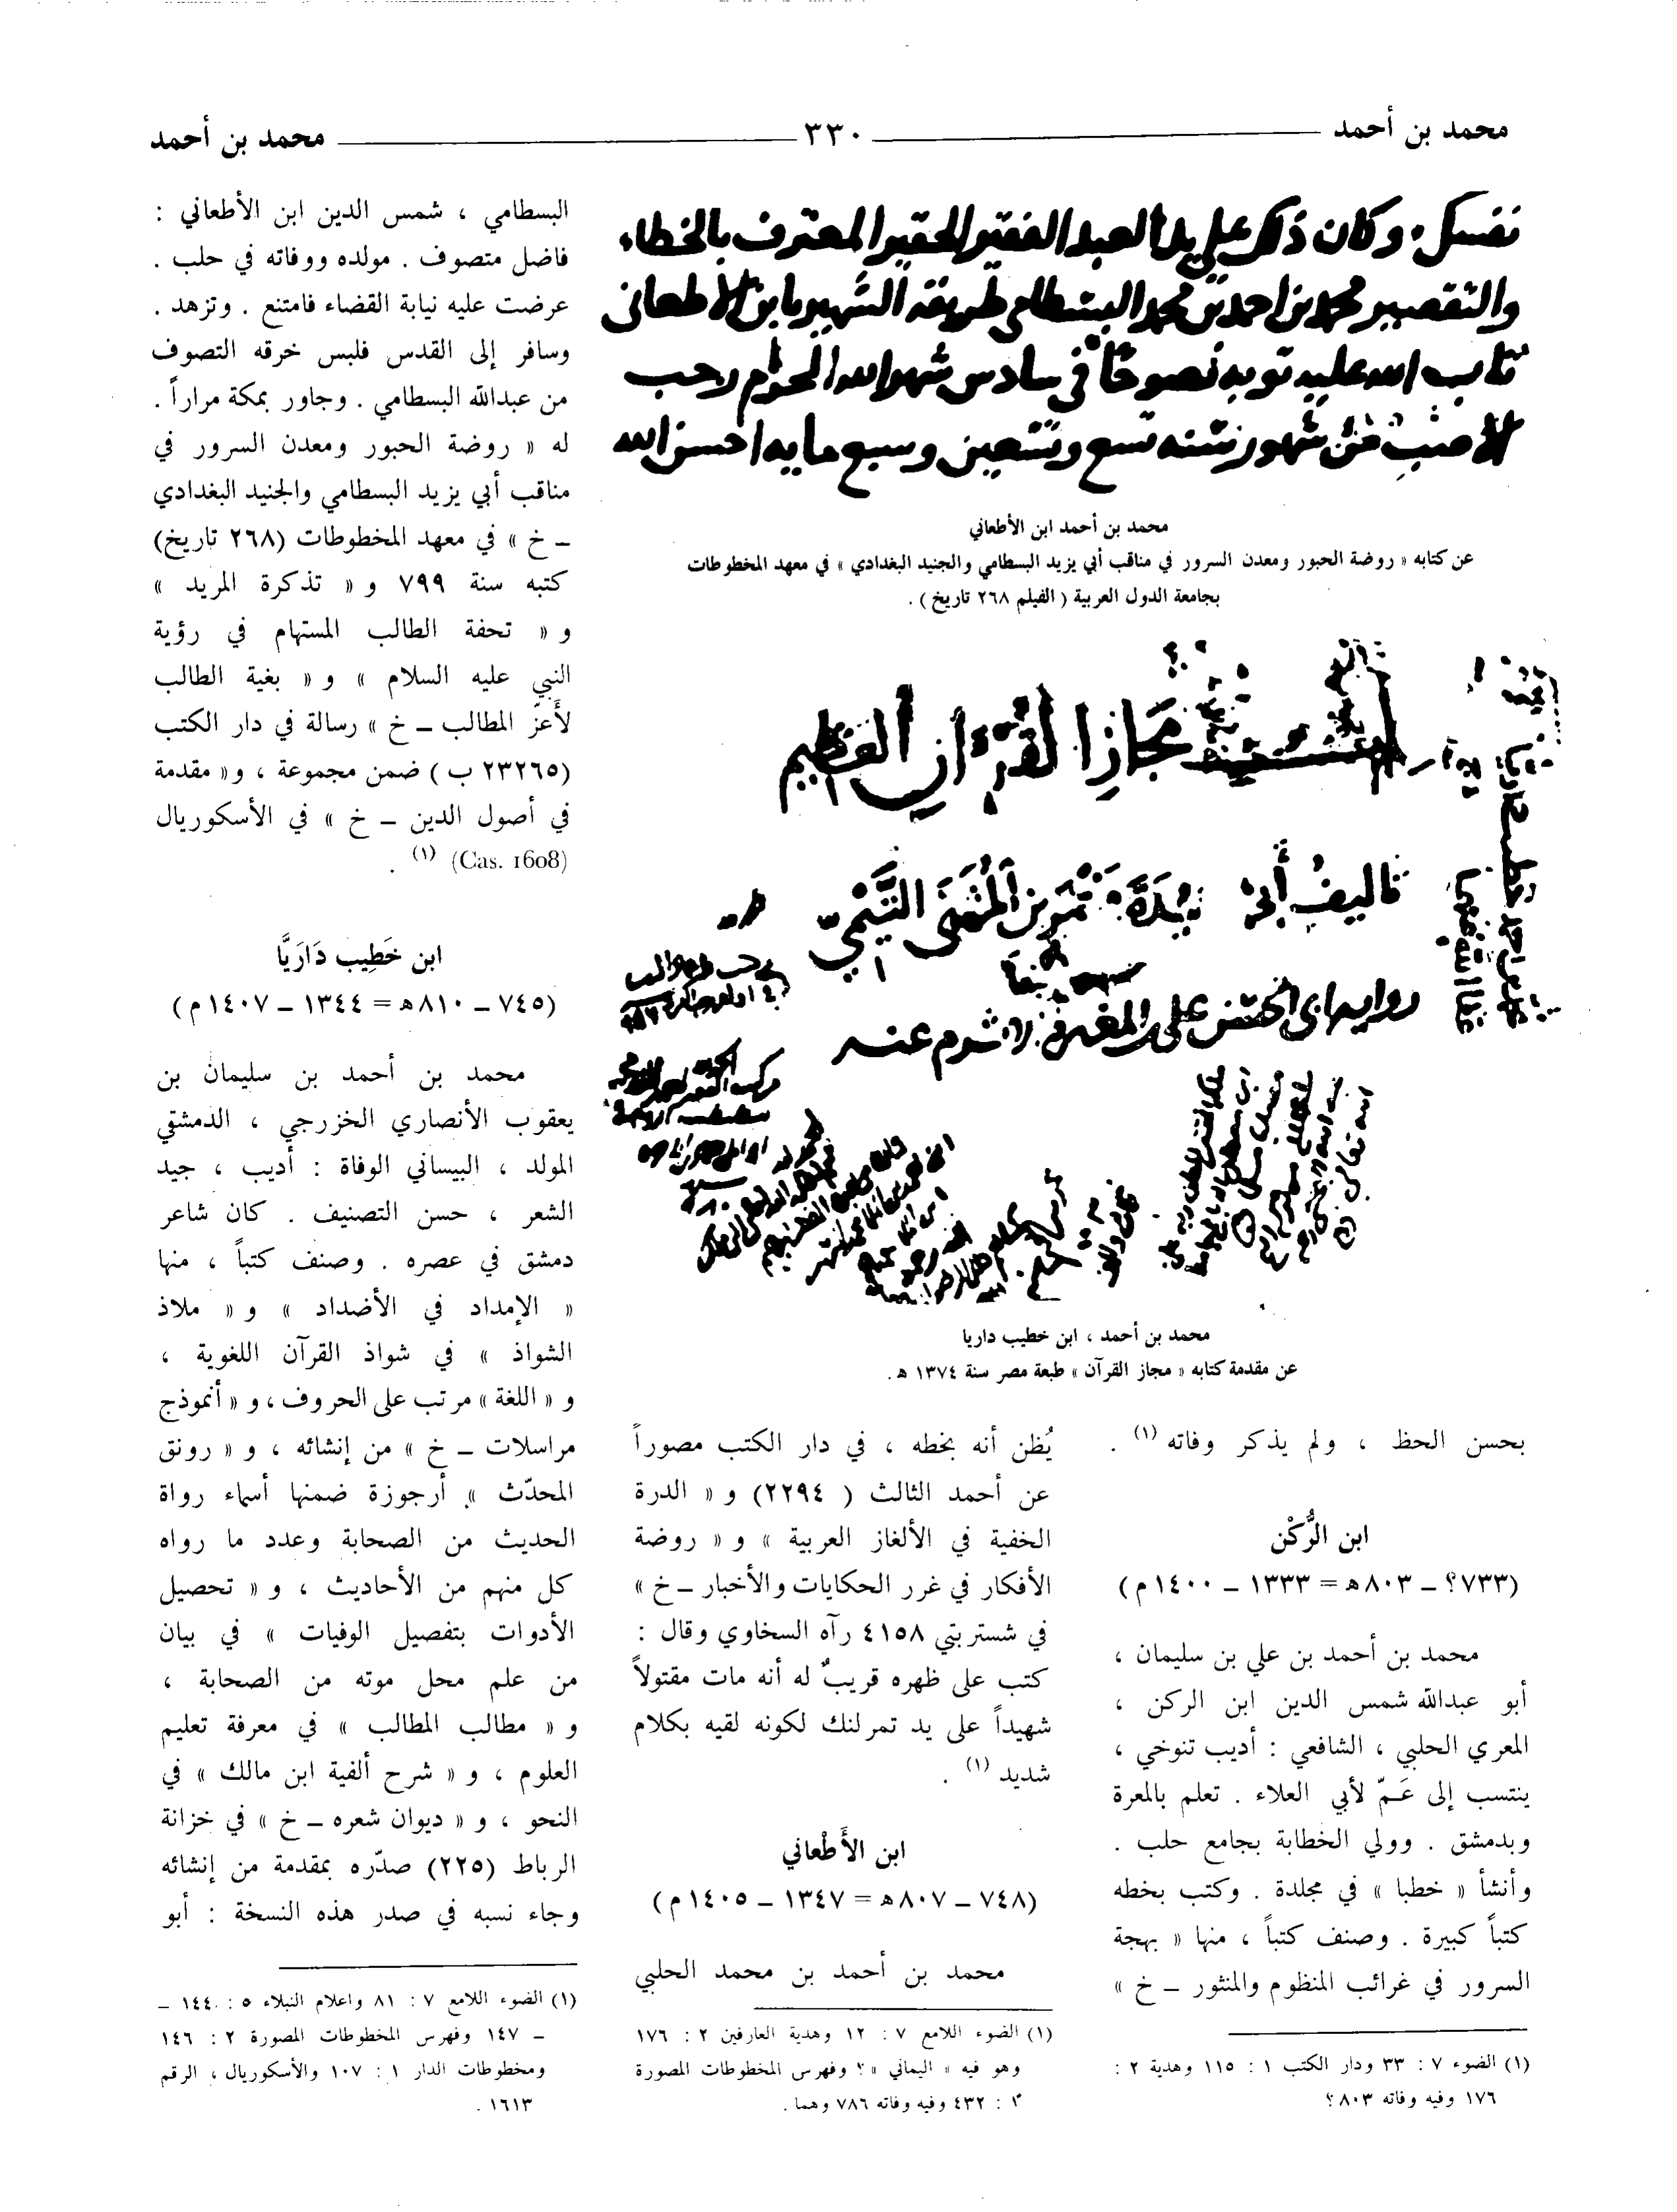 محمد بن أحمد ــــــ ٣٣٠ ــــــ محمد بن أحمد
نفسكل . وكان ذكر على يد العبد الفقير الحقير المعترف بالخطاء
والتقصير محمد بن احمد بن محمد البسطامى طريقة الشهير بابن الاطعانى
تاب الله عليه توبة نصوحًا فى سادس شهر الله الحرام رجب
الاصب من شهور سنة تسع وتسعين وسبع مايه احسن الله
محمد بن أحمد ابن الأطعاني
عن كتابه « روضة الحبور ومعدن السرور في مناقب أبي يزيد البسطامي والجنيد البغدادي » في معهد المخطوطات
بجامعة الدول العربية ( الفيلم ٢٦٨ تاريخ ) .
مجاز القرآن العظيم
تاليف أبى عبيدة معمر بن المثنى التيمي
محمد بن أحمد ، ابن خطيب داريا
عن مقدمة كتابه « مجاز القرآن » طبعة مصر سنة ١٣٧٤ ه .
بحسن الحظ ، ولم يذكر وفاته (١) .
ابن الرُّكْن
(٧٣٣؟ ــ ٨٠٣ ه = ١٣٣٣ ــ ١٤٠٠ م)
محمد بن أحمد بن علي بن سليمان ،
أبو عبدالله شمس الدين ابن الركن ،
المعري الحلبي ، الشافعي : أديب تنوخي ،
ينتسب إلى عَـمّ لأبي العلاء . تعلم بالمعرة
وبدمشق . وولي الخطابة بجامع حلب .
وأنشأ « خطبا » في مجلدة . وكتب بخطه
كتباً كبيرة . وصنف كتباً ، منها « بهجة
السرور في غرائب المنظوم والمنثور ــ خ »
(١) الضوء ٧ : ٣٣ ودار الكتب ١ : ١١٥ وهدية ٢ :
١٧٦ وفيه وفاته ٨٠٣ ؟
يُظن أنه بخطه ، في دار الكتب مصوراً
عن أحمد الثالث ( ٢٢٩٤) و « الدرة
الخفية في الألغاز العربية » و « روضة
الأفكار في غرر الحكايات والأخبار ــ خ »
في شستربتي ٤١٥٨ رآه السخاوي وقال :
كتب على ظهره قريبٌ له أنه مات مقتولاً
شهيداً على يد تمرلنك لكونه لقيه بكلام
شديد (١) .
ابن الأَطْعاني
(٧٤٨ ــ ٨٠٧ ه = ١٣٤٧ ــ ١٤٠٥ م)
محمد بن أحمد بن محمد الحلبي
(١) الضوء اللامع ٧ : ١٢ وهدية العارفين ٢ : ١٧٦
وهو فيه « اليماني » ؟ وفهرس المخطوطات المصورة
٢ : ٤٣٢ وفيه وفاته ٧٨٦ وهما .
البسطامي ، شمس الدين ابن الأطعاني :
فاضل متصوف . مولده ووفاته في حلب .
عرضت عليه نيابة القضاء فامتنع . وتزهد .
وسافر إلى القدس فلبس خرقه التصوف
من عبدالله البسطامي . وجاور بمكة مراراً .
له « روضة الحبور ومعدن السرور في
مناقب أبي يزيد البسطامي والجنيد البغدادي
ــ خ » في معهد المخطوطات (٢٦٨ تاريخ)
كتبه سنة ٧٩٩ و « تذكرة المريد »
و « تحفة الطالب المستهام في رؤية
النبي عليه السلام » و « بغية الطالب
لأَعزّ المطالب ــ خ » رسالة في دار الكتب
(٢٣٢٦٥ ب ) ضمن مجموعة ، و« مقدمة
في أصول الدين ــ خ » في الأسكوريال
(Cas. 1608) (١) .
ابن خَطِيب دَارَيَّا
(٧٤٥ ــ ٨١٠ ه = ١٣٤٤ ــ ١٤٠٧ م)
محمد بن أحمد بن سليمان بن
يعقوب الأنصاري الخزرجي ، الدمشقي
المولد ، البيساني الوفاة : أديب ، جيد
الشعر ، حسن التصنيف . كان شاعر
دمشق في عصره . وصنف كتباً ، منها
« الإمداد في الأضداد » و « ملاذ
الشواذ » في شواذ القرآن اللغوية ،
و « اللغة » مرتب على الحروف ، و « أنموذج
مراسلات ــ خ » من إنشائه ، و « رونق
المحدّث » أرجوزة ضمنها أسماء رواة
الحديث من الصحابة وعدد ما رواه
كل منهم من الأحاديث ، و « تحصيل
الأدوات بتفصيل الوفيات » في بيان
من علم محل موته من الصحابة ،
و « مطالب المطالب » في معرفة تعليم
العلوم ، و « شرح ألفية ابن مالك » في
النحو ، و « ديوان شعره ــ خ » في خزانة
الرباط (٢٢٥) صدّره بمقدمة من إنشائه
وجاء نسبه في صدر هذه النسخة : أبو
(١) الضوء اللامع ٧ : ٨١ واعلام النبلاء ٥ : ١٤٤ ــ
ــ ١٤٧ وفهرس المخطوطات المصورة ٢ : ١٤٦
ومخطوطات الدار ١ : ١٠٧ والأسكوريال ، الرقم
١٦١٣ .